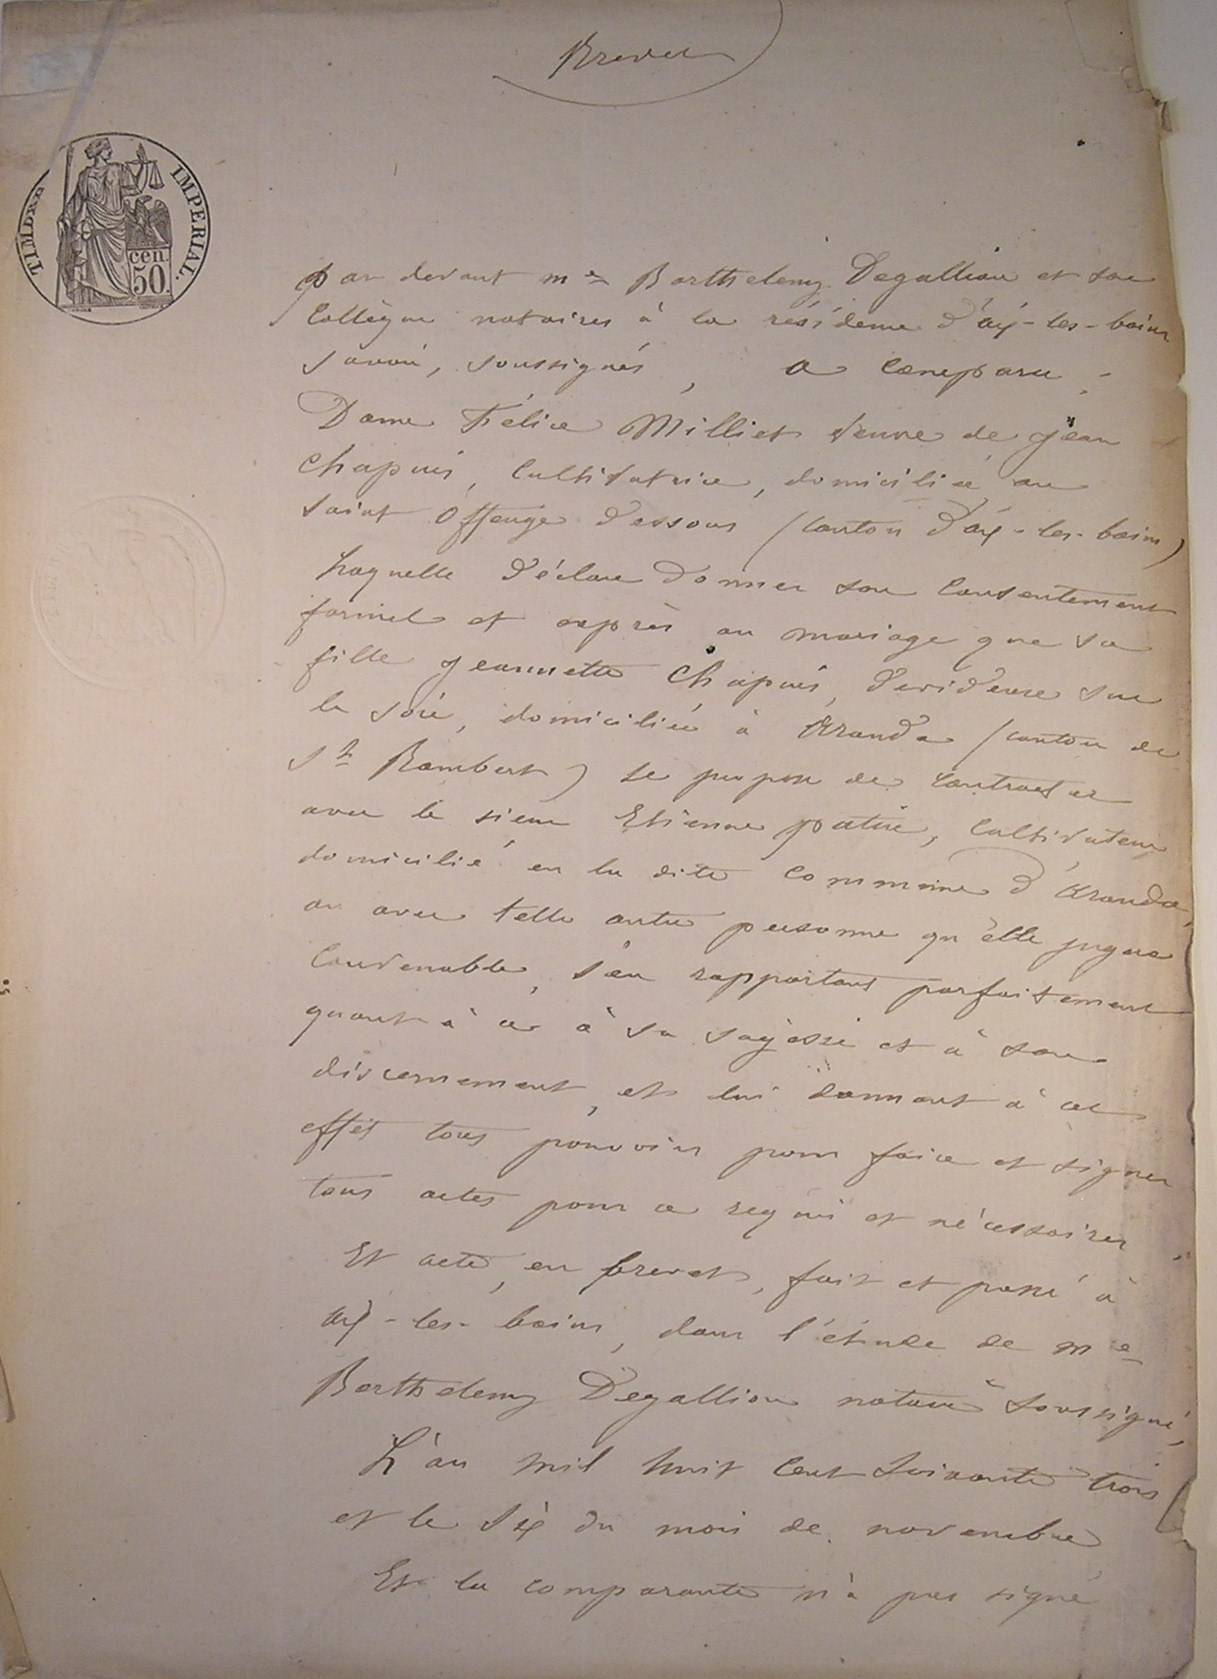 Brevet
TIMBRE IMPERIAL.
50 cen.
par devant me Barthelemy Degallion et son
Collègue notaires à la résidence d'aix-les-bains
savoie, soussignés, a comparu :
Dame Félice Milliet veuve de jean
Chapuis, Cultivatrice, domiciliée au
Saint Offenge dessous (canton d'aix-les-bains)
Laquelle déclare donner son consentement
formel et exprès au mariage que sa
fille jeannette Chapuis, dévideuse sur
la soie, domiciliée à Aranda (canton de
St Rambert) se propose de contracter
avec le sieur Etienne, Cultivateur
domicilié en la dite commune d'Aranda,
ou avec telle autre personne qu'elle jugera
Convenable, s'en rapportant parfaitement
quant à ce à sa sagesse et à son
discernement, et lui donnant à cet
effet tous pouvoirs pour faire et signer
tous actes pour ce requis et nécessaires
Et acte, en brevet, fait et passé à
aix-les-bains, dans l'étude de me
Barthelemy Degallion notaire soussigné,
L'an mil huit cent soixante trois
et le six du mois de novembre
Et la comparante n'a pas signé